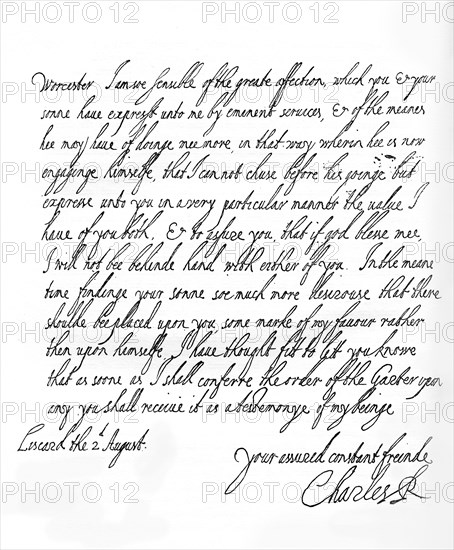 Worcester I am soe sensible of the greate affection, which you & your
sonne have exprest unto me by eminent services, & of the meanes
hee may have of doinge mee more, in that way wherein hee is now
engaginge himselfe, that I cannot chuse before his goinge but
expresse unto you in a very particular manner the value I
have of you both, & to assure you, that if god blesse mee
I will not bee behinde hand with either of you. In the meane
time findinge your sonne soe much more desirouse that there
should bee placed upon you some marke of my favour rather
then upon himselfe, I have thought fit to let you knowe
that as soone as I shall conferre the order of the Garter upon
any you shall receive it as a testemonye of my beinge
Liscard the 2d August.
your assured constant freinde
Charles R
PHOTO 12